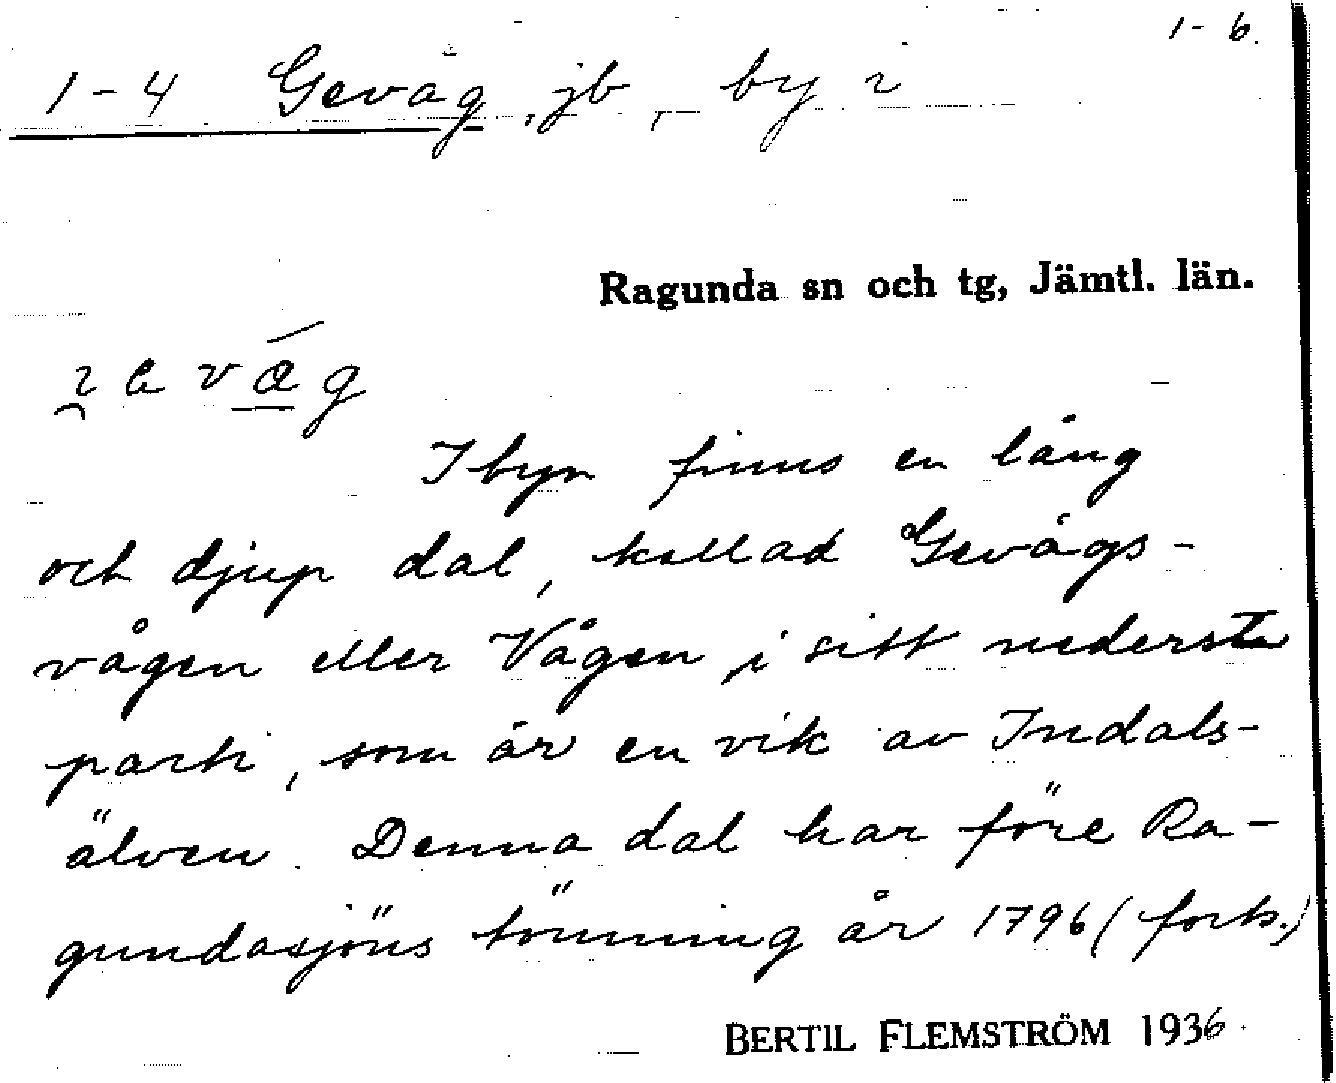 1-6.
1-4 Gevåg, jb, by i
Ragunda sn och tg, Jämtl. län.
I byn finns en lång
och djup dal, kallad Gevågs-
vågen eller Vågen i sitt nedersta
parti, som är en vik av Indals-
älven. Denna dal har före Ra-
gundasjöns tömning år 1796 (forts.)
BERTIL FLEMSTRÖM 1936